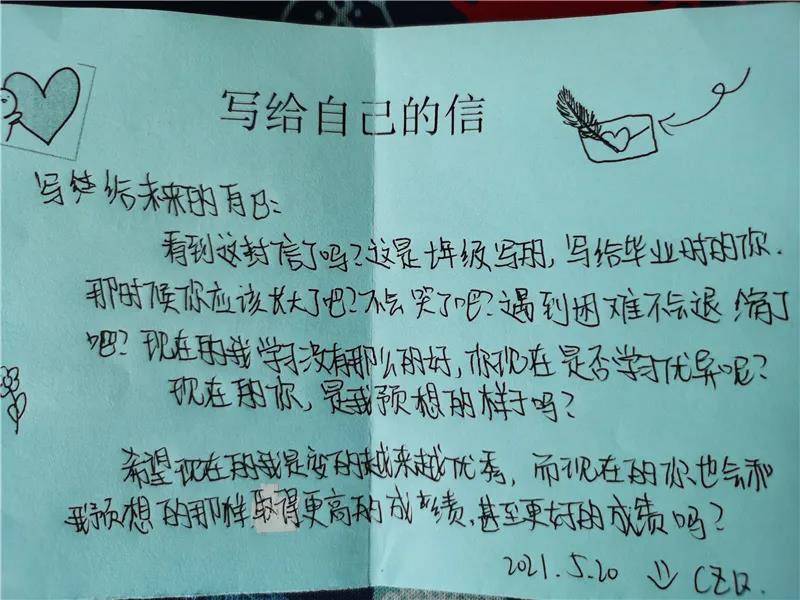 写给自己的信
写给未来的自己:
看到这封信了吗?这是七年级写的,写给毕业时的你.
那时候你应该长大了吧?不会哭了吧?遇到困难不会退缩了
吧?现在的我学习没有那么的好,你现在是否学习优异呢?
现在的你,是我预想的样子吗?
希望现在的我是变的越来越优秀,而现在的你也会和
我预想的那样取得更高的成绩,甚至更好的成绩吗?
2021.5.20 CZQ.